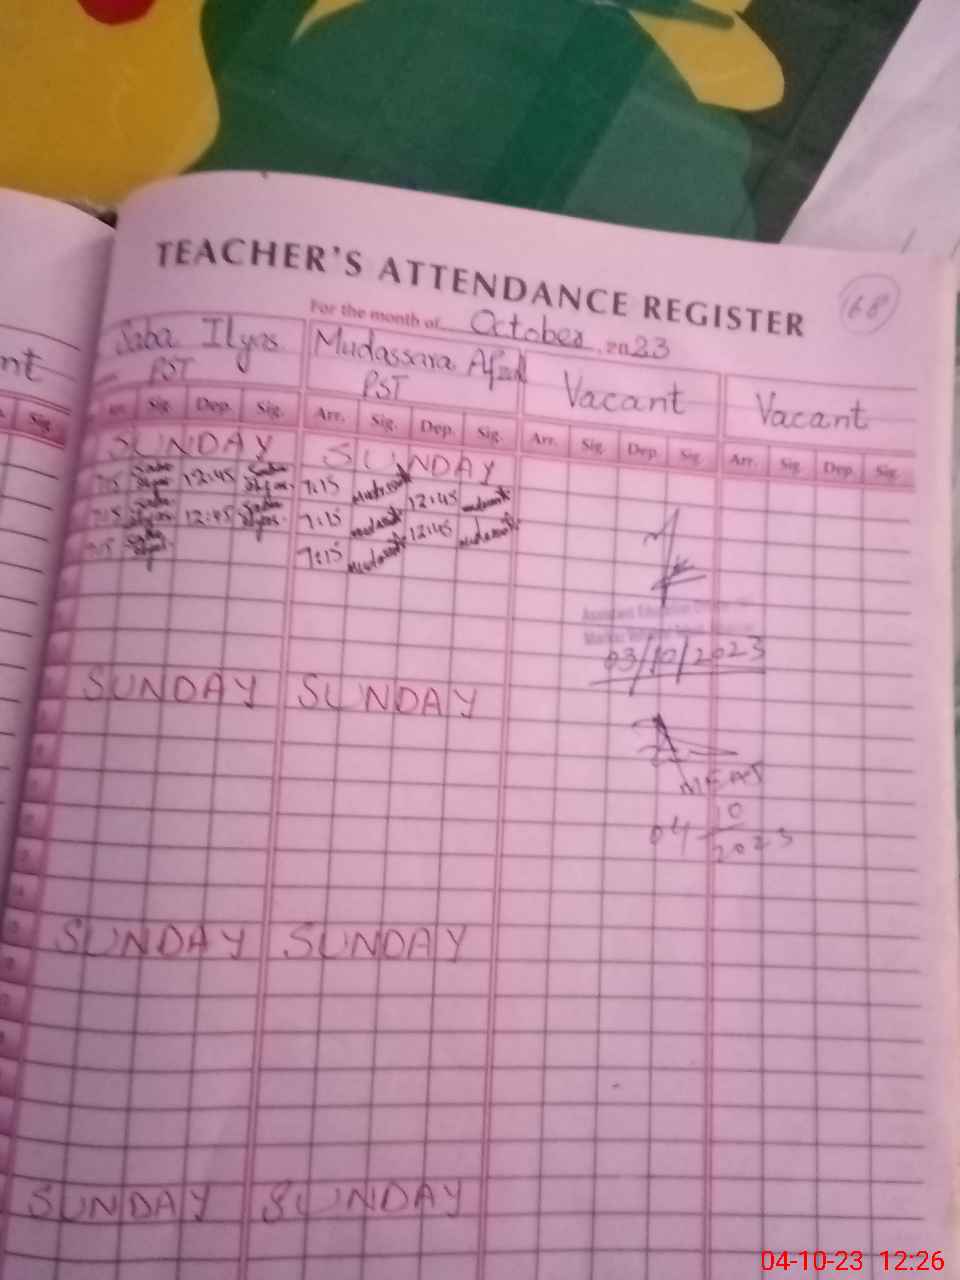 TEACHER'S ATTENDANCE REGISTER
168
For the month of October, 2023
Saba Ilyas Mudassara Afzal Vacant Vacant
PST PST
nt
Sig.
Arr. Sig. Dep. Sig. Arr. Sig. Dep. Sig. Arr. Sig. Dep. Sig. Arr. Sig. Dep. Sig.
SUNDAY SUNDAY
7:15 Saba Ilyas 12:45 Saba Ilyas 7:15 Mudassara 12:45 Mudassara
7:15 Saba Ilyas 12:45 Saba Ilyas 7:15 Mudassara 12:45 Mudassara
7:15 Saba Ilyas 7:15 Mudassara
Assistant Education
03/10/2023
SUNDAY SUNDAY
MEA
04 10 2023
SUNDAY SUNDAY
SUNDAY SUNDAY
04-10-23 12:26